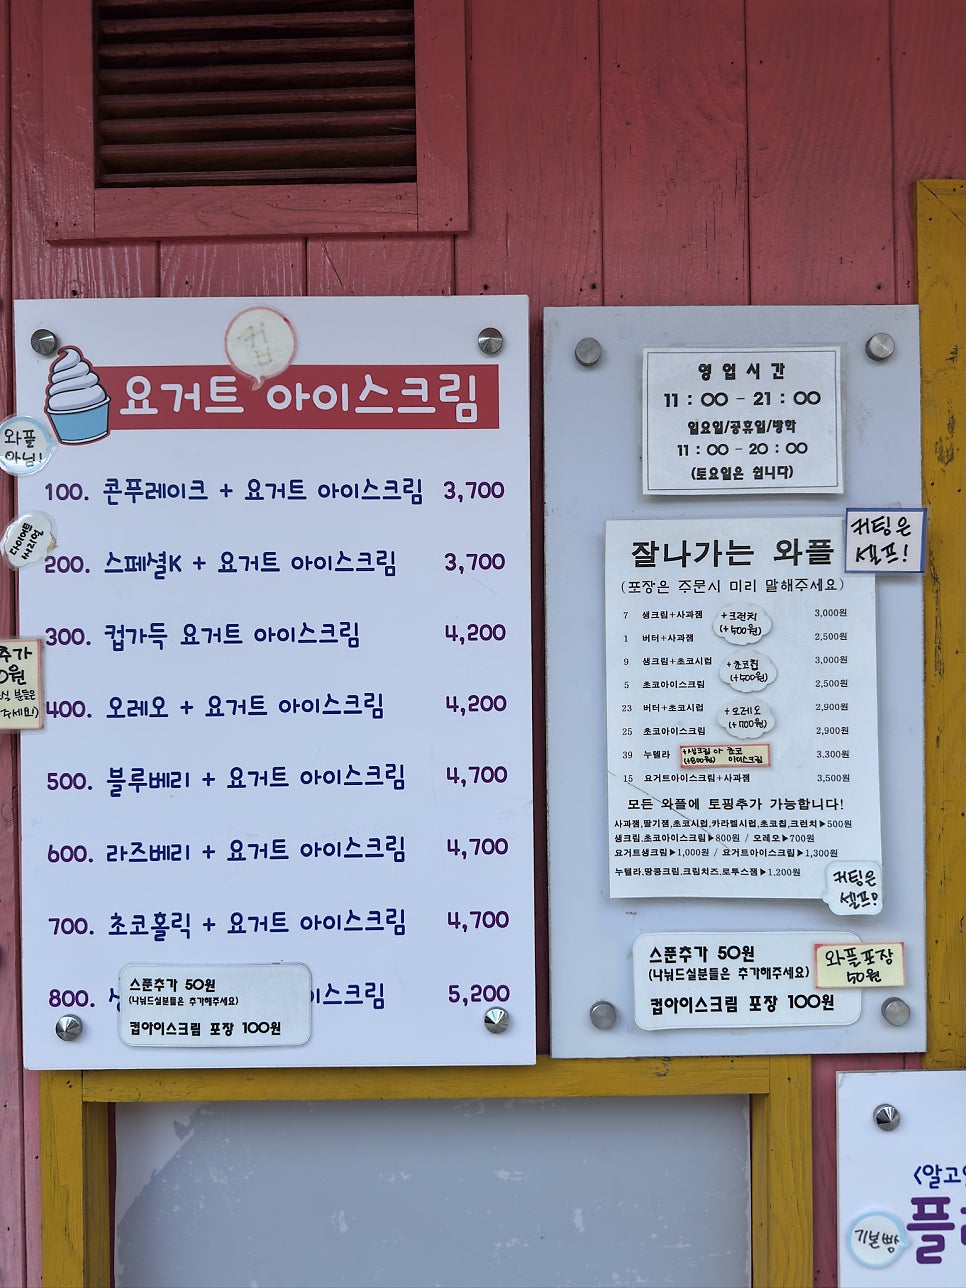 컵
요거트 아이스크림
와플
아님!
100. 콘푸레이크 + 요거트 아이스크림 3,700
다이어트
200. 스페셜K + 요거트 아이스크림 3,700
300. 컵가득 요거트 아이스크림 4,200
추가
0원
분들은
주세요!)
400. 오레오 + 요거트 아이스크림 4,200
500. 블루베리 + 요거트 아이스크림 4,700
600. 라즈베리 + 요거트 아이스크림 4,700
700. 초코홀릭 + 요거트 아이스크림 4,700
800. 이스크림 5,200
스푼추가 50원
(나눠드실분들은 추가해주세요)
컵아이스크림 포장 100원
영업시간
11 : 00 - 21 : 00
일요일/공휴일/방학
11 : 00 - 20 : 00
(토요일은 쉽니다)
커팅은
셀프!
잘나가는 와플
(포장은 주문시 미리 말해주세요)
7 생크림+사과잼 3,000원
+크런치
(+500원)
1 버터+사과잼 2,500원
9 생크림+초코시럽 3,000원
+초코칩
(+500원)
5 초코아이스크림 2,500원
23 버터+초코시럽 2,900원
+오레오
(+700원)
25 초코아이스크림 2,900원
39 누텔라 3.300원
+생크림 or 초코
(+800원) 아이스크림
15 요거트아이스크림+사과잼 3,500원
모든 와플에 토핑추가 가능합니다!
사과잼,딸기잼,초코시럽,카라멜시럽,초코칩,크런치▶500원
생크림,초코아이스크림▶800원 / 오레오▶700원
요거트생크림▶1,000원 / 요거트아이스크림▶1,300원
누텔라,땅콩크림,크림치즈,로투스잼▶1.200원
커팅은
셀프!
스푼추가 50원
(나눠드실분들은 추가해주세요)
컵아이스크림 포장 100원
와플포장
50원
<알고
플
기본빵